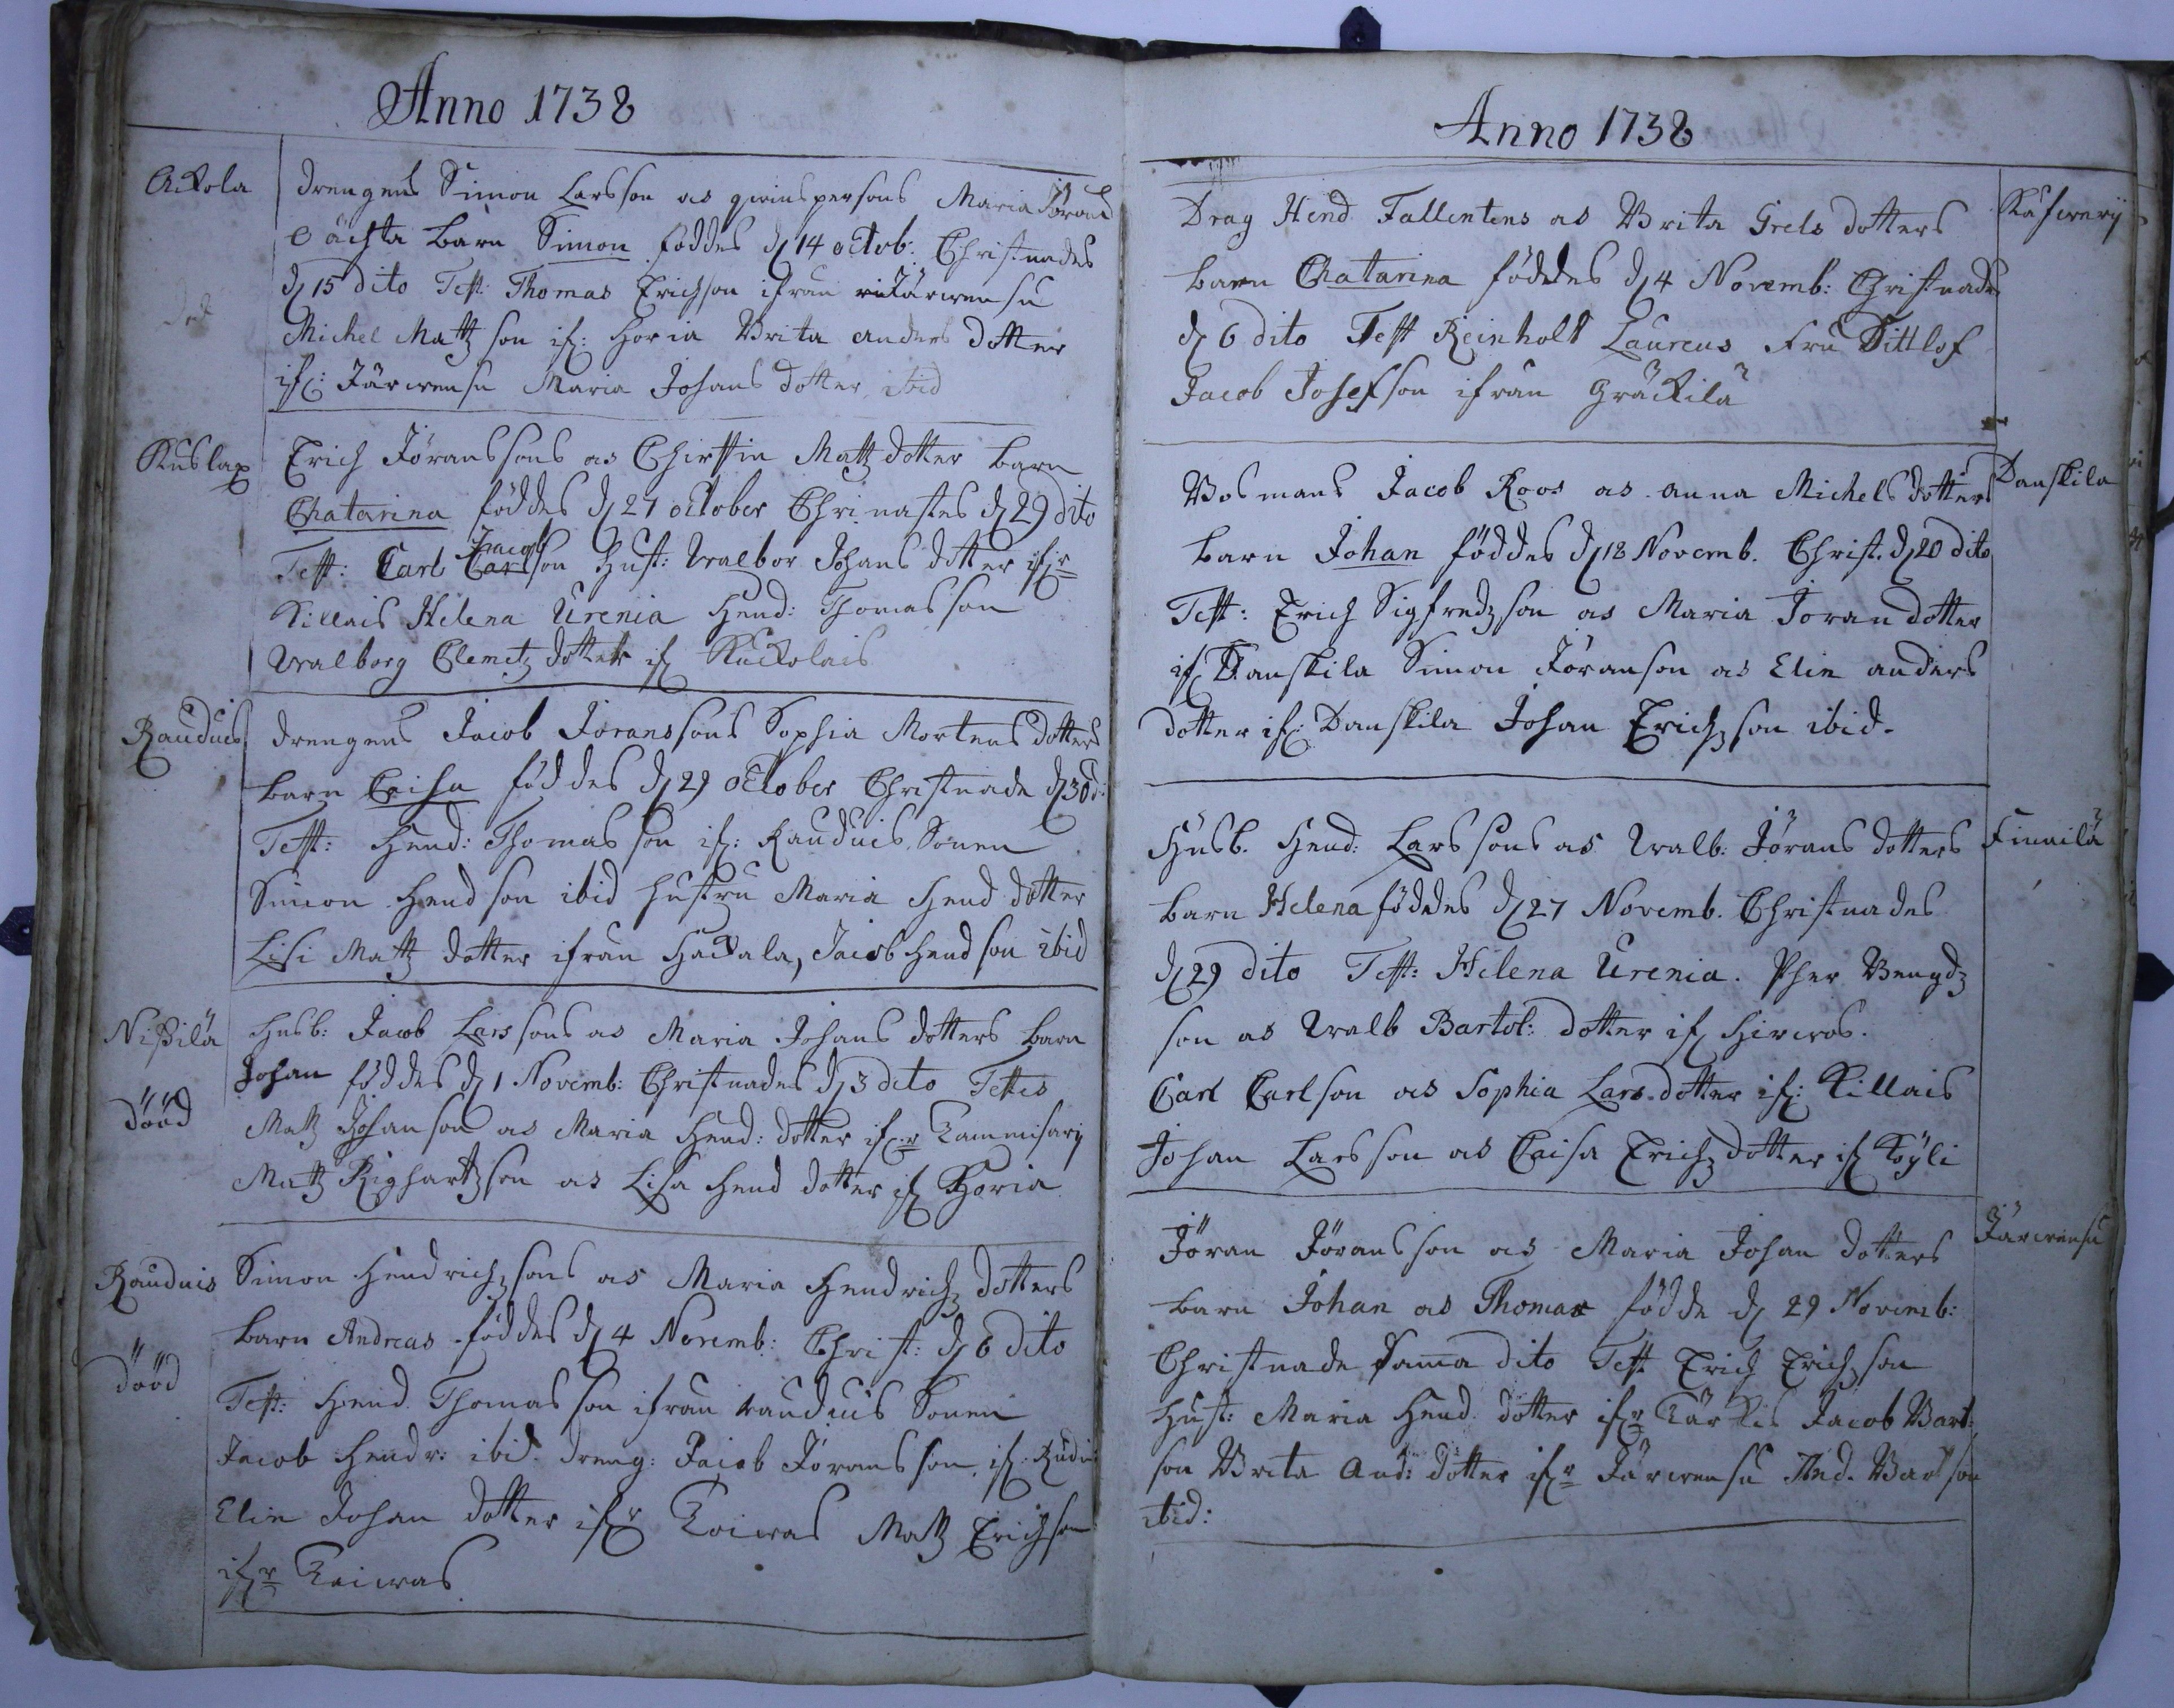 Anno 1738
Ackola
drengens Simon Larsson as qwinspersons Maria Jöran
Oächta barn Simon föddes d 14 octob: Christnades
d 15 dito Test: Thomas Erichson ifrån Järwensu
Michel Mattzson if: Horia Brita anders dotter
if: Järwensu Maria Johans dotter ibid
Kuslax
Erich Jöranssons as Chirstin Mattz dotter barn
Chatarina föddes d 27 october Chrinastes d 29 dito
Test: Carl Jacob son Hust: Walbor Johans dotter ifr
Killais Helena Urenia Hend: Thomasson
Walborg Clemetz dotter if Kuckolais
Rauduis
drengens Jacob Joranssons Sophia Mortens dotters
barn Caisa föddes d 29 october Christnade d 30 d:
Test: Hend: Thomasson if: Rauduis Sonen
Simon Hendson ibid hustru Maria Hend dotter
Lisi Mattz dotter ifrån Hackala, Jacob Hendson ibid
Nißilä
dööd
Husb: Jacob Larssons as Maria Johans dotters barn
Johan föddes d 1 Novemb: Christnades d 3 dito Testes
Mattz Johanson as Maria Hend: dotter ifr Kammisari
Mattz Righartzson as Lisa Hend dotter if Horia
Rauduis
dööd
Simon Hendrichsons as Maria Hendrichz dotters
barn Andreas föddes d 4 Novemb: Christ: d 6 dito
Test: Hend Thomasson ifrån rauduis Sonen
Jacob Hendr: ibid. dreng: Jacob Jöransson, if: Rudui
Elin Johan dotter ifr Koiwas Mattz Erichson
ifr Koiwas
Anno 1738
Drag Hend Fallentens as Brita Grels dotters
barn Chatarina föddes d 4 Novemb: Christnade
d 6 dito Test Reinholt Laureus Fru Dittlof
Jacob Josefson ifrån Gräckilä
Bosmans Jacob Roos as anna Michels dotters
Danskila
barn Johan föddes d 18 Novemb. Christ. d 20 dito
Test: Erich Sigfredzson as Maria Joran dotter
if Danskila Simon Jöranson as Elin anders
dotter if: Danskila Johan Erichzson ibid.
Husb. Hend: Larssons as Walb: Jörans dotters
Finnilä
barn Helena föddes d 27 Novemb. Christnades
d 29 dito Test: Helena Urenia. Pher Bengdz
son as Walb Bartol: dotter if Hirwos.
Carl Carlson as Sophia Lars dotter if: Killais
Johan Larsson as Caisa Erichz dotter if Köyli
Järwensu
Jöran Jöransson as Maria Johan dotters
barn Johan as Thomas födde d 29 Novemb:
Christnade Samma dito Test Erich Erichson
Hust: Maria Hend: dotter ifr Kärkis Jacob Bart:
son Brita And: dotter ifr Järwensu And. Bartson
ibid: